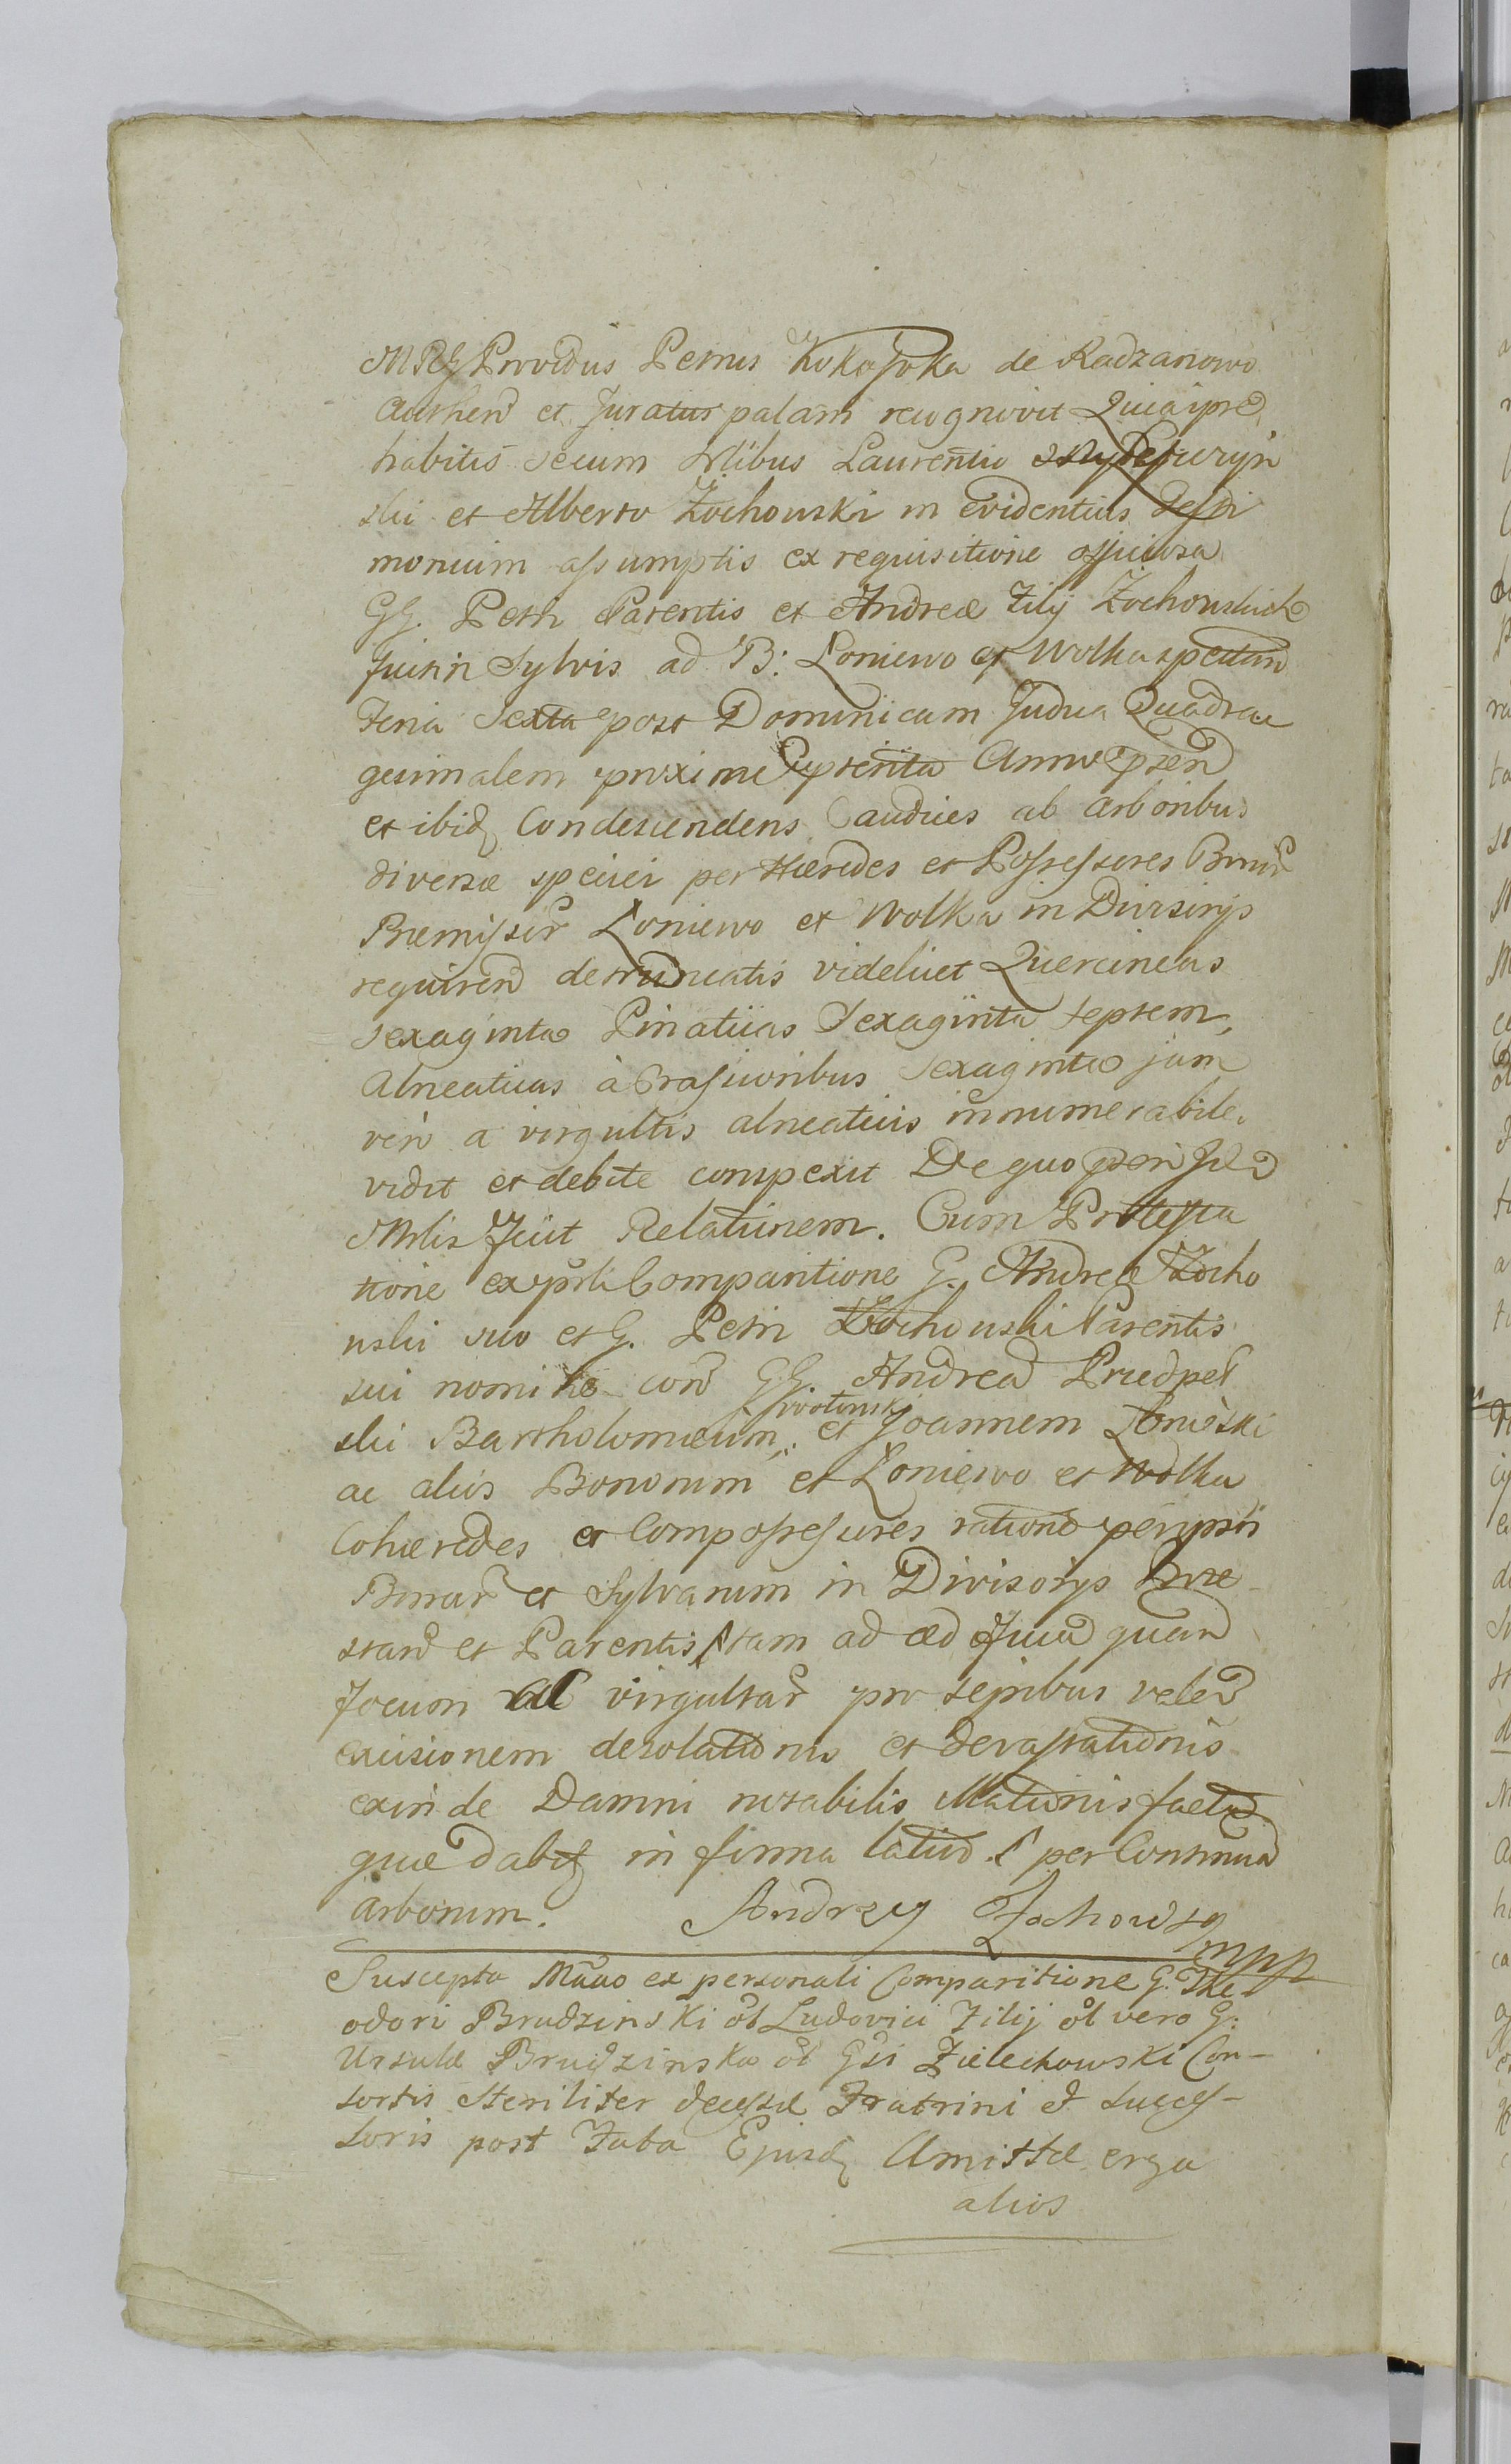 MRG Providus Petrus Kokoszka de Radzanowo
authen et Juratus palam recognovit Quia ipse
habitis secum Nlibus Laurentio
ski et Alberto Zochowski in evidentius Testi
monium assumptis ex requisitione officiosa
GG. Petri Parentis et Andreæ Filij Zochowskich
fuit in Sylvis ad B: Loniewo et Wolka spectan
Feria Sexta post Dominicam Judica Quadra
gesimalem proxime præterita Anni præsen
et ibid Condescendens Caudices ab arboribus
diversæ speciei per Hæredes et Possessores Bonor
Præmissor Loniewo et Wolka in Divisorijs
reguiren detruncatis videlicet Quercineas
sexaginta Pinaticas Sexaginta septem,
Alneaticas à Crassioribus Sexaginta jam
vero a virgultis alneaticis innumerabile.
vidit et debite conspexit De quo præsen suã
Mlis fecit Relationem. Cum Protesta
tione ex psrli Comparitione G. Andreæ Zocho
wski suo et G. Petri Zochowski Parentis
sui nomine con GG. Andrea Przedpel
ski Bartholomæum Swolinski et Joannem Loniewski
ac alios Bonorum et Loniewo et Wolka
Cohæredes et Compossessores ratione per ipsos
Bonor et Sylvarum in Divisorijs
stan et Parentis tam ad ædificia quam
focum ac virgultar pro sepibus
excisionem desolationis et devastationis
exinde Damni notabilis Illationis factæ
quæ dabit in firma latius per Continua
Arborum. Andrzey Zochowsky
mpp
Suscepta Mãao ex personali Comparitione G. The
odori Brudzinski ol Ludovici Filij ol vero G:
Ursulæ Brudzinska ol Gsi Zielechowski Con-
sortis Steriliter decessæ Fratrini et Succes-
soris post Fata Ejusd Amittæ erga
alios